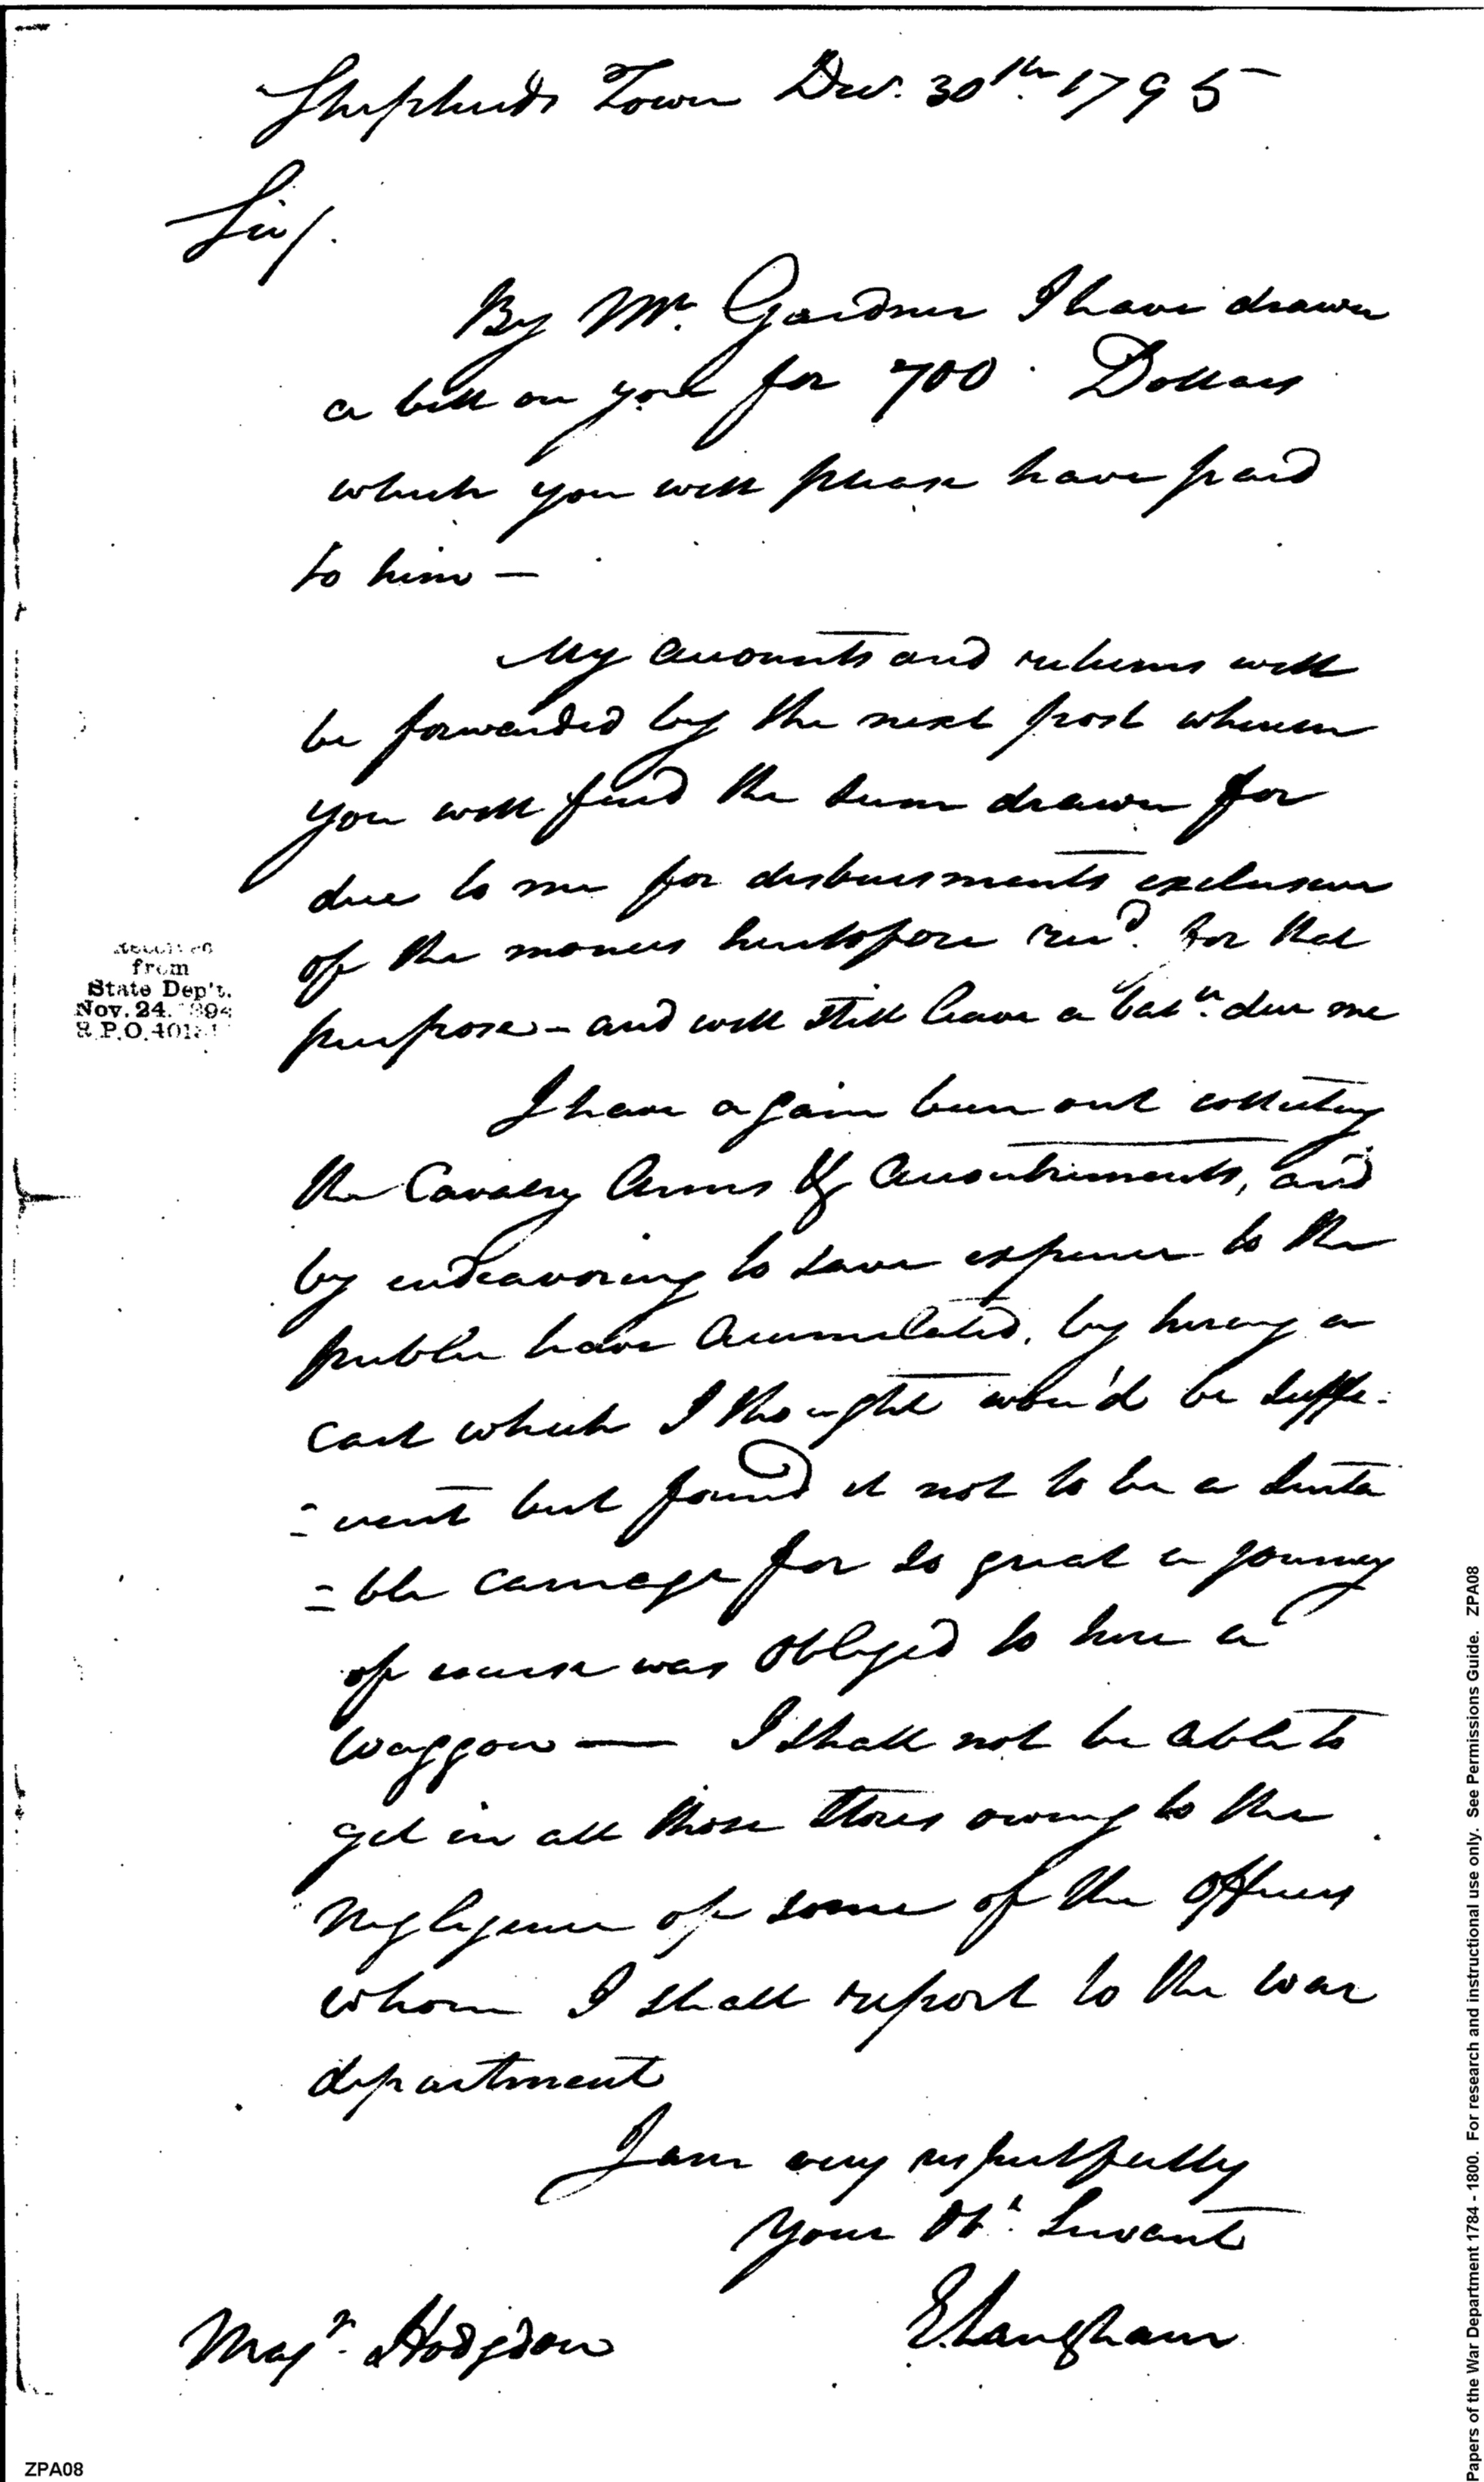 Shepherds Town Decr. 30th 1795
Sir/.
By Mr. Gardner I have drawn
a bill on you for 700 Dollars
which you will please have paid
to him —
My accounts and returns will
be forwarded by the next post wherein
you will find the sum drawn for
due to me for disbursments exclusive
of the monies heretofore recd. for that
purpose - and will still leave a bale. due me
I have again been out collecting
the Cavalry Arms & Accoutriments, and
by endeavoring to save expence to the
public have accumulated, by hireing a
cart which I thought wou'd be suffi-
=cient but found it not to be a suita
=ble carriage for so great a journey
of course was obliged to hire a
waggon — I shall not be able to
get in all those stores owing to the
negligence of some of the officers
whom I shall report to the war
department
I am very respectfully
Your Obt. Servant
E Langham
Majr. Hodgdon
from
State Dep't.
Nov. 24.
ZPA08
Papers of the War Department 1784 - 1800. For research and instructional use only. See Permissions Guide. ZPA08